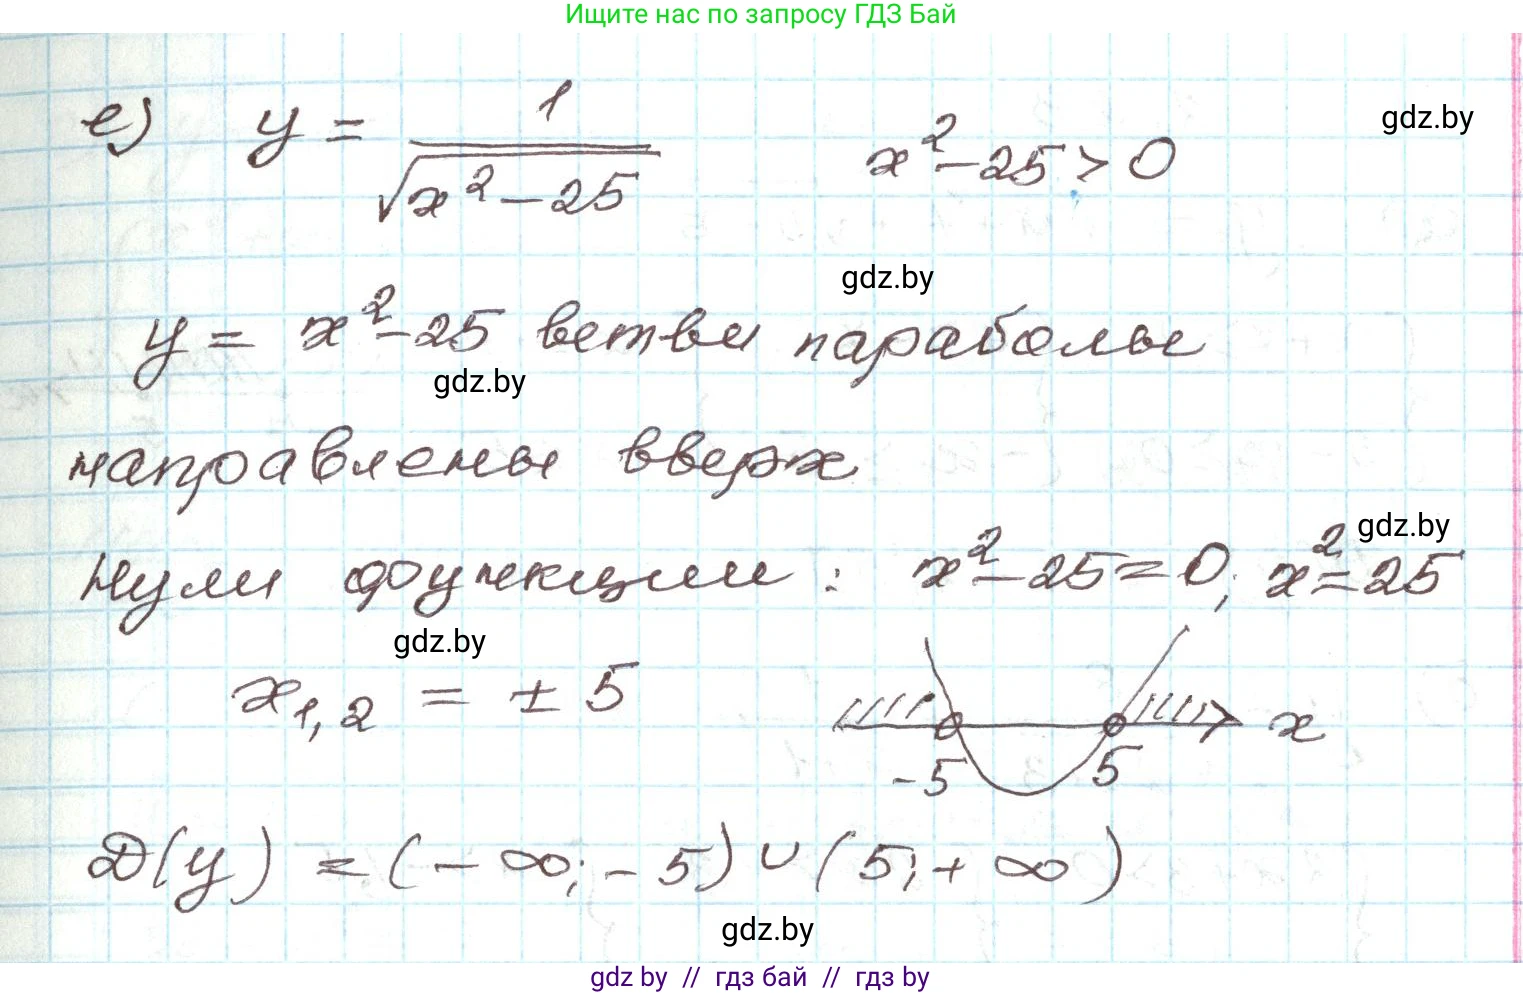 Ищите нас по запросу ГДЗ Бай
е) y = 1/√(x² − 25)   x² − 25 > 0
gdz.by
gdz.by
y = x² − 25 ветви параболы
gdz.by
направлены вверх
gdz.by
Нули функции: x² − 25 = 0; x² = 25
gdz.by
x₁,₂ = ± 5
-5 5 x
D(y) = (−∞; −5) ∪ (5; +∞)
gdz.by
gdz by // гдз бай // гдз by